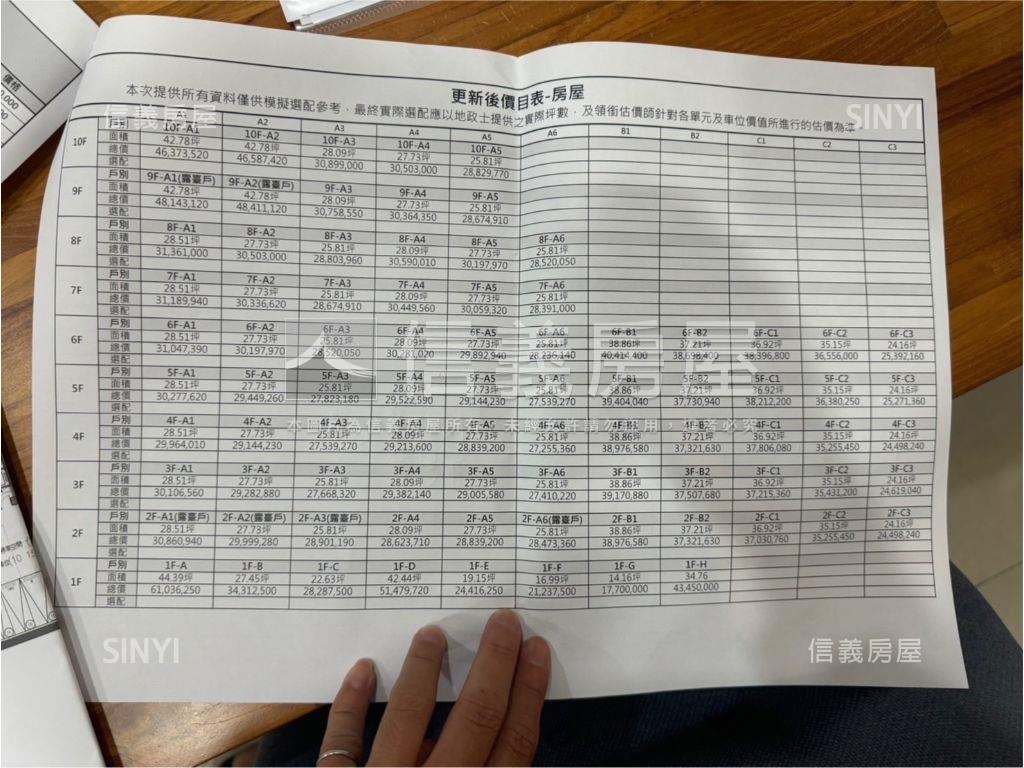 價格
更新後價目表-房屋
本次提供所有資料僅供模擬選配參考，最終實際選配應以地政士提供之實際坪數，及領銜估價師針對各單元及車位價值所進行的估價為準
信義房屋
SINYI
A2 A3 A4 A5 A6 B1 B2 C1 C2 C3
10F 10F-A1 10F-A2 10F-A3 10F-A4 10F-A5
面積 42.78坪 42.78坪 28.09坪 27.73坪 25.81坪
總價 46,373,520 46,587,420 30,899,000 30,503,000 28,829,770
選配
9F 戶別 9F-A1(露臺戶) 9F-A2(露臺戶) 9F-A3 9F-A4 9F-A5
面積 42.78坪 42.78坪 28.09坪 27.73坪 25.81坪
總價 48,143,120 48,411,120 30,758,550 30,364,350 28,674,910
選配
8F 戶別 8F-A1 8F-A2 8F-A3 8F-A4 8F-A5 8F-A6
面積 28.51坪 27.73坪 25.81坪 28.09坪 27.73坪 25.81坪
總價 31,361,000 30,503,000 28,803,960 30,590,010 30,197,970 28,520,050
選配
7F 戶別 7F-A1 7F-A2 7F-A3 7F-A4 7F-A5 7F-A6
面積 28.51坪 27.73坪 25.81坪 28.09坪 27.73坪 25.81坪
總價 31,189,940 30,336,620 28,674,910 30,449,560 30,059,320 28,391,000
選配
6F 戶別 6F-A1 6F-A2 6F-A3 6F-A4 6F-A5 6F-A6 6F-B1 6F-B2 6F-C1 6F-C2 6F-C3
面積 28.51坪 27.73坪 25.81坪 28.09坪 27.73坪 25.81坪 38.86坪 37.21坪 36.92坪 35.15坪 24.16坪
總價 31,047,390 30,197,970 28,520,050 30,281,020 29,892,940 28,236,140 40,414,400 38,698,400 38,396,800 36,556,000 25,392,160
選配
信義房屋
5F 戶別 5F-A1 5F-A2 5F-A3 5F-A4 5F-A5 5F-A6 5F-B1 5F-B2 5F-C1 5F-C2 5F-C3
面積 28.51坪 27.73坪 25.81坪 28.09坪 27.73坪 25.81坪 38.86坪 37.21坪 36.92坪 35.15坪 24.16坪
總價 30,277,620 29,449,260 27,823,180 29,522,590 29,144,230 27,539,270 39,404,040 37,730,940 38,212,200 36,380,250 25,271,360
選配
4F 戶別 4F-A1 4F-A2 4F-A3 4F-A4 4F-A5 4F-A6 4F-B1 4F-B2 4F-C1 4F-C2 4F-C3
本圖為信義房屋所有，未經允許請勿盜用，違者必究
面積 28.51坪 27.73坪 25.81坪 28.09坪 27.73坪 25.81坪 38.86坪 37.21坪 36.92坪 35.15坪 24.16坪
總價 29,964,010 29,144,230 27,539,270 29,213,600 28,839,200 27,255,360 38,976,580 37,321,630 37,806,080 35,255,450 24,498,240
選配
3F 戶別 3F-A1 3F-A2 3F-A3 3F-A4 3F-A5 3F-A6 3F-B1 3F-B2 3F-C1 3F-C2 3F-C3
面積 28.51坪 27.73坪 25.81坪 28.09坪 27.73坪 25.81坪 38.86坪 37.21坪 36.92坪 35.15坪 24.16坪
總價 30,106,560 29,282,880 27,668,320 29,382,140 29,005,580 27,410,220 39,170,880 37,507,680 37,215,360 35,431,200 24,619,040
選配
2F 戶別 2F-A1(露臺戶) 2F-A2(露臺戶) 2F-A3(露臺戶) 2F-A4 2F-A5 2F-A6(露臺戶) 2F-B1 2F-B2 2F-C1 2F-C2 2F-C3
面積 28.51坪 27.73坪 25.81坪 28.09坪 27.73坪 25.81坪 38.86坪 37.21坪 36.92坪 35.15坪 24.16坪
總價 30,860,940 29,999,280 28,901,190 28,623,710 28,839,200 28,473,360 38,976,580 37,321,630 37,030,760 35,255,450 24,498,240
選配
1F 戶別 1F-A 1F-B 1F-C 1F-D 1F-E 1F-F 1F-G 1F-H
面積 44.39坪 27.45坪 22.63坪 42.44坪 19.15坪 16.99坪 14.16坪 34.76
總價 61,036,250 34,312,500 28,287,500 51,479,720 24,416,250 21,237,500 17,700,000 43,450,000
選配
SINYI
信義房屋